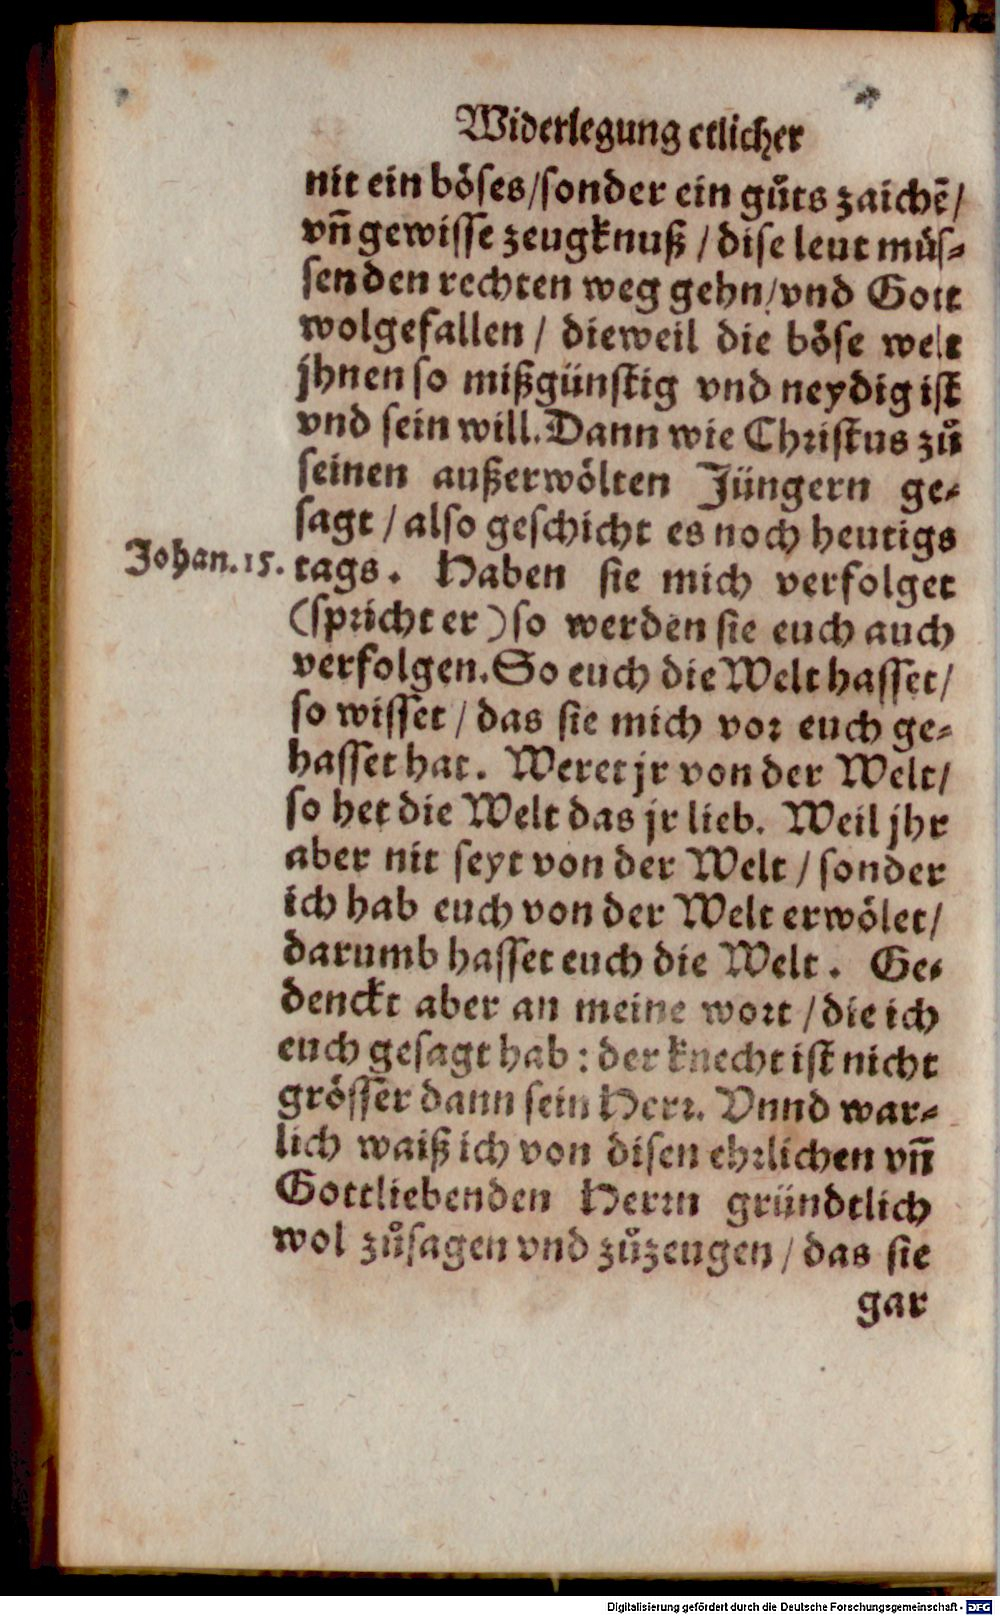 Widerlegung etlicher
nit ein böses/sonder ein gůts zaichẽ/
vñ gewisse zeugknuß / dise leut müs⸗
sen den rechten weg gehn/vnd Gott
wolgefallen / dieweil die böse welt
jhnen so mißgünstig vnd neydig ist
vnd sein will. Dann wie Christus zů
seinen außerwölten Jüngern ge⸗
sagt / also geschicht es noch heutigs
Johan. 15. tags. Haben sie mich verfolget
(spricht er) so werden sie euch auch
verfolgen. So euch die Welt hasset/
so wisset / das sie mich vor euch ge⸗
hasset hat. Weret jr von der Welt/
so het die Welt das jr lieb. Weil jhr
aber nit seyt von der Welt / sonder
ich hab euch von der Welt erwölet/
darumb hasset euch die Welt. Ge⸗
denckt aber an meine wort / die ich
euch gesagt hab: der knecht ist nicht
grösser dann sein Herr. Vnnd war⸗
lich waiß ich von disen ehrlichen vñ
Gottliebenden Herrn gründtlich
wol zůsagen vnd zůzeugen / das sie
gar
Digitalisierung gefördert durch die Deutsche Forschungsgemeinschaft - DFG